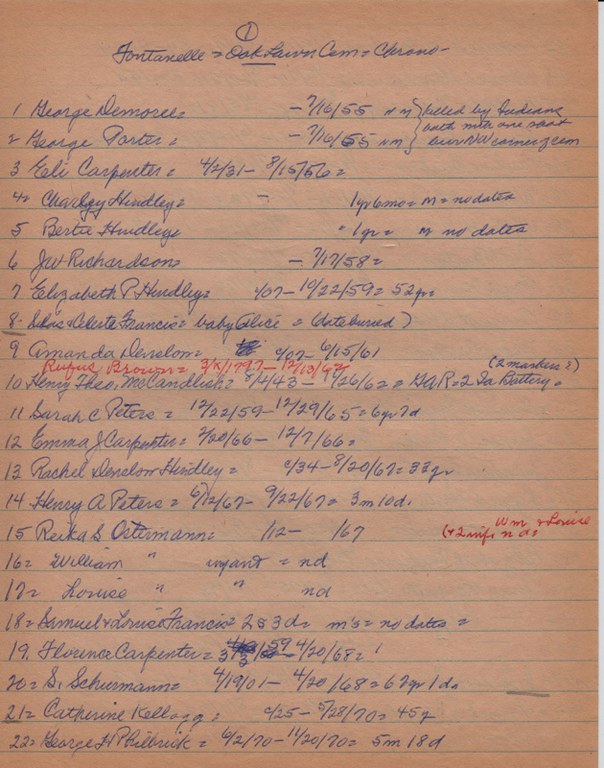 1
Fontanelle = Oak Lawn Cem = Chrono -
1 George Demoree = - 7/16/55 NM } killed by Indians
2 George Porter = - 7/16/55 NM } both mkr one
bur. NW corner of cem
3 Eli Carpenter = 4/2/31 - 8/15/56 =
4 = Hindley = - 1 yr 6 mo = m = no dates
5 Bertie Hindley " 1 yr = m no dates
6 JW Richardson = - 7/17/58 =
7 Elizabeth P Hindley = c/07 - 10/22/59 = 52 yr =
8 - Silas + Celeste Francis = baby Alice = (date buried)
9 Amanda Denslow = c/07 - 6/15/61
Rufus Brown = 1797 - 12/13/62
(2 markers?)
10 = Henry Theo. McCandlish = 8/4/43 - 1/26/62 = GAR = 2 Ia Battery =
11 Sarah C Peters = 12/22/59 - 12/29/65 = 6 yr 7 d
12 Emma J Carpenter = 2/20/66 - 12/7/66 =
13 Rachel Denslow Hindley = c/34 - 8/20/67 = 33 yr
14 Henry A Peters = 6/12/67 - 9/22/67 = 3 m 10 d.
15 Reika S Ostermann = /12 - /67 (+ 2 inf. Wm + Louise n d =
16 = William " infant = nd
17 = Louise " " nd
18 = Samuel + Louise Francis = 2 s 3 d = m's = no dates =
19. Florence Carpenter = 3/3/59 - 4/20/68 =
20 = S. Schurmann = 4/19/01 - 4/20/68 = 67 yr 1 da
21 = Catherine Kellogg = c/25 - 5/28/70 = 45 y
22 = George H Philbrick = 6/2/70 - 11/20/70 = 5 m 18 d